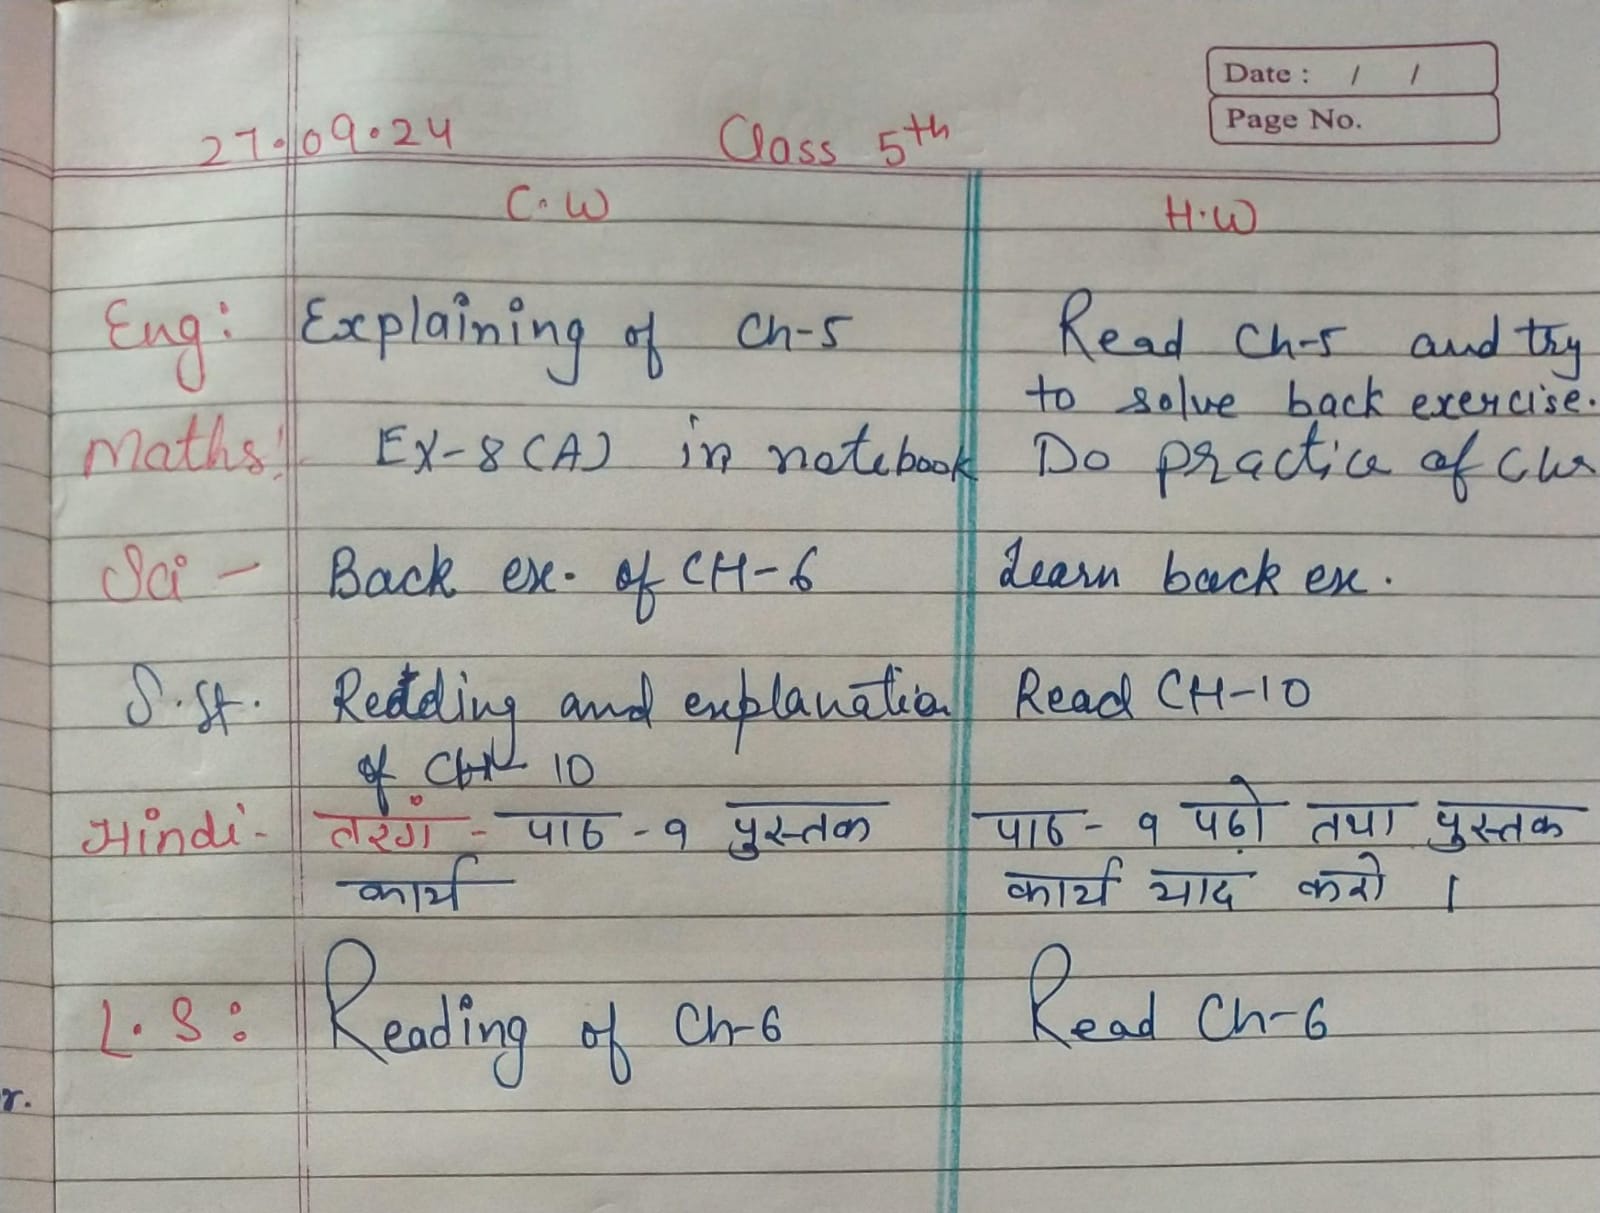 Date : / /
Page No.
27.09.24 Class 5th
C.W H.W
Eng: Explaining of Ch-5 Read Ch-5 and try
to solve back exercise.
Maths: EX-8(A) in notebook Do practice of CW
Sci - Back ex. of CH-6 Learn back ex.
S.St. Reading and explanation Read CH-10
of CH-10
Hindi- तरंग - पाठ - १ पुस्तक पाठ - १ पढ़ो तथा पुस्तक
कार्य कार्य याद करो ।
L.S: Reading of Ch-6 Read Ch-6
r.